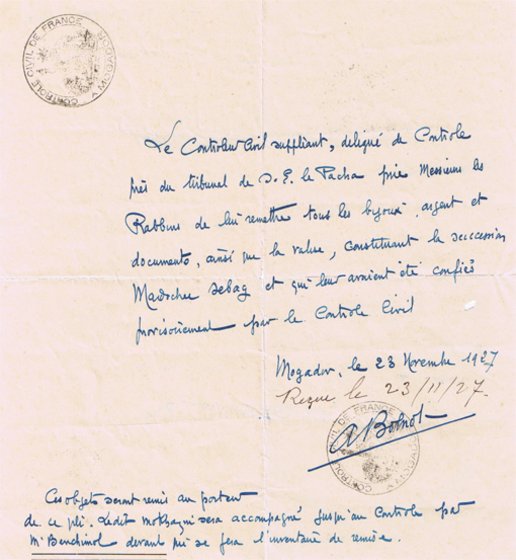 CONTROLE CIVIL DE FRANCE A MOGADOR
Le Controleur Civil suppliant, délégué de Controle
près du tribunal de S.E. le Pacha prie Messieurs les
Rabbins de lui remettre tous les bijoux, argent et
documents, ainsi que la valise, constituant la succession
Mardochee Sebag et qui leur avaient été confiés
provisoirement par le Controle Civil
Mogador, le 23 Novembre 1927
Reçue le 23/11/27.
CONTROLE CIVIL DE FRANCE A MOGADOR
Ces objets seront remis au porteur
de ce pli. Ledit sera accompagné jusqu'au Controle par
Mr Benchimol devant qui se fera l'inventaire de remise.